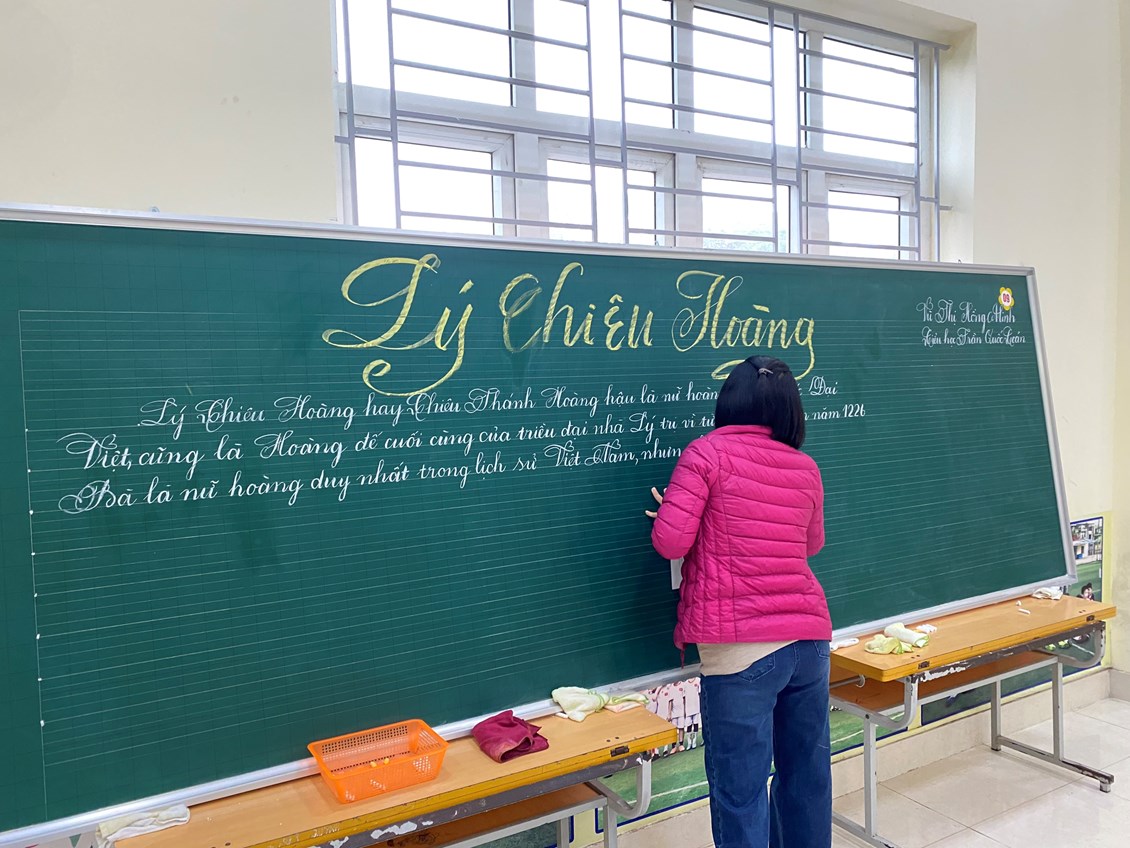 Lý Chiêu Hoàng
09
Vũ Thị Hồng
Tiểu học Trần Quốc Toản
Lý Chiêu Hoàng hay Chiêu Thánh Hoàng hậu là nữ Đại
Việt, cũng là Hoàng đế cuối cùng của triều đại nhà Lý trị vì năm 1226
Bà là nữ hoàng duy nhất trong lịch sử Việt Nam,